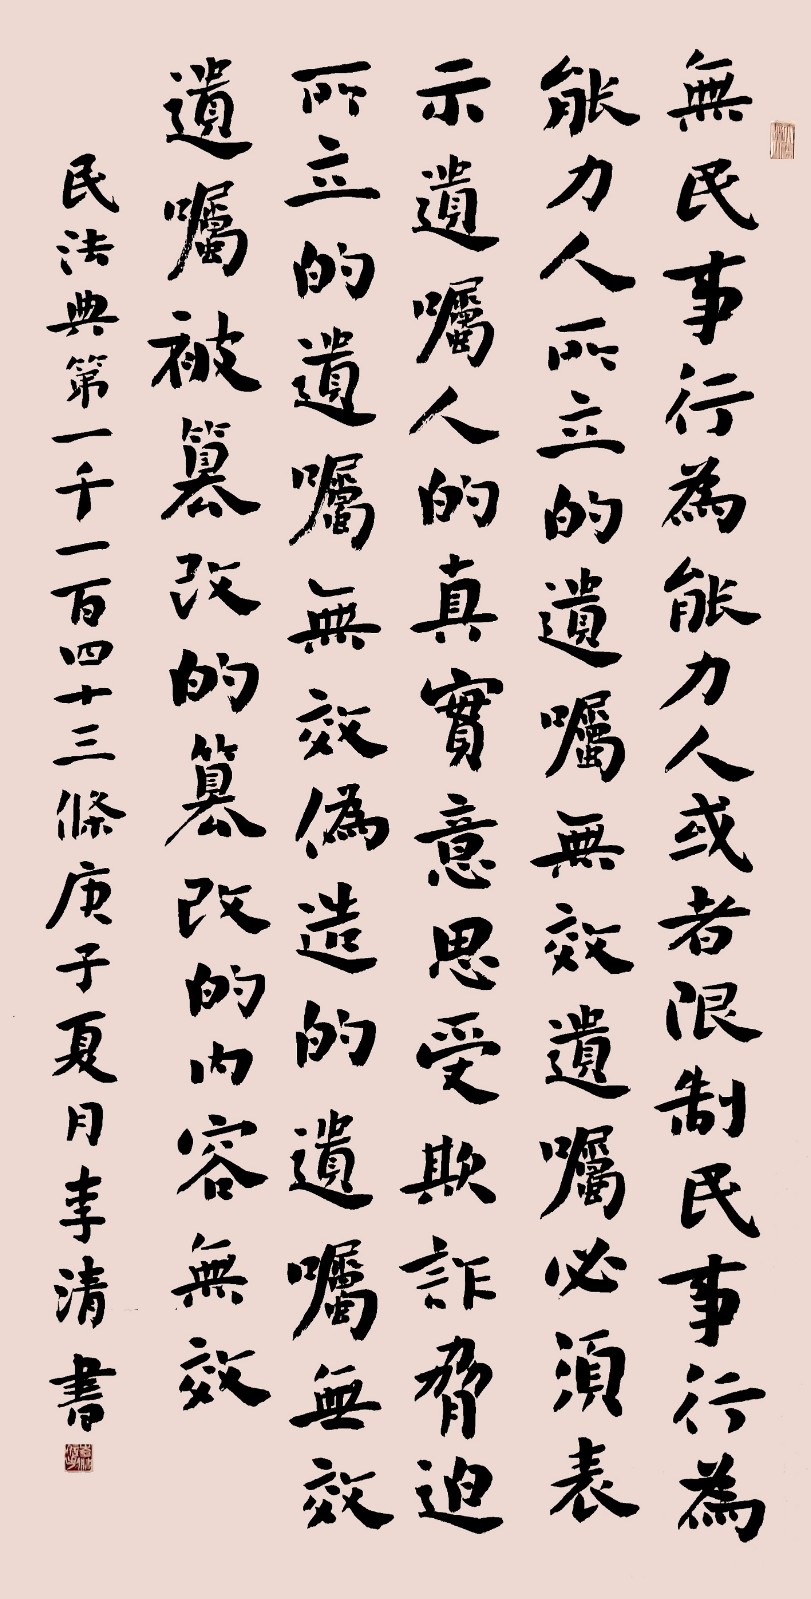 無民事行為能力人或者限制民事行為
能力人所立的遺囑無效遺囑必須表
示遺囑人的真實意思受欺詐脅迫
所立的遺囑無效偽造的遺囑無效
遺囑被篡改的篡改的内容無效
民法典第一千一百四十三條庚子夏月李清書